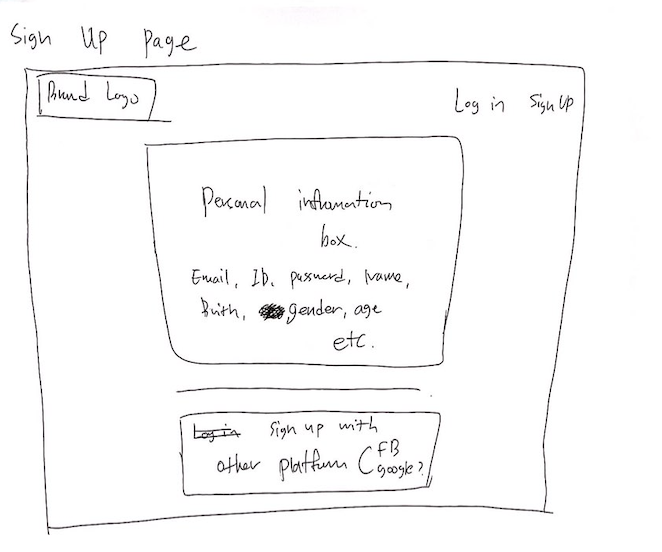 Sign Up page
Brand Logo
Log in Sign Up
Personal information
box.
Email, ID, password, name,
Birth, gender, age
etc.
Log in sign up with
other platform (FB
google?